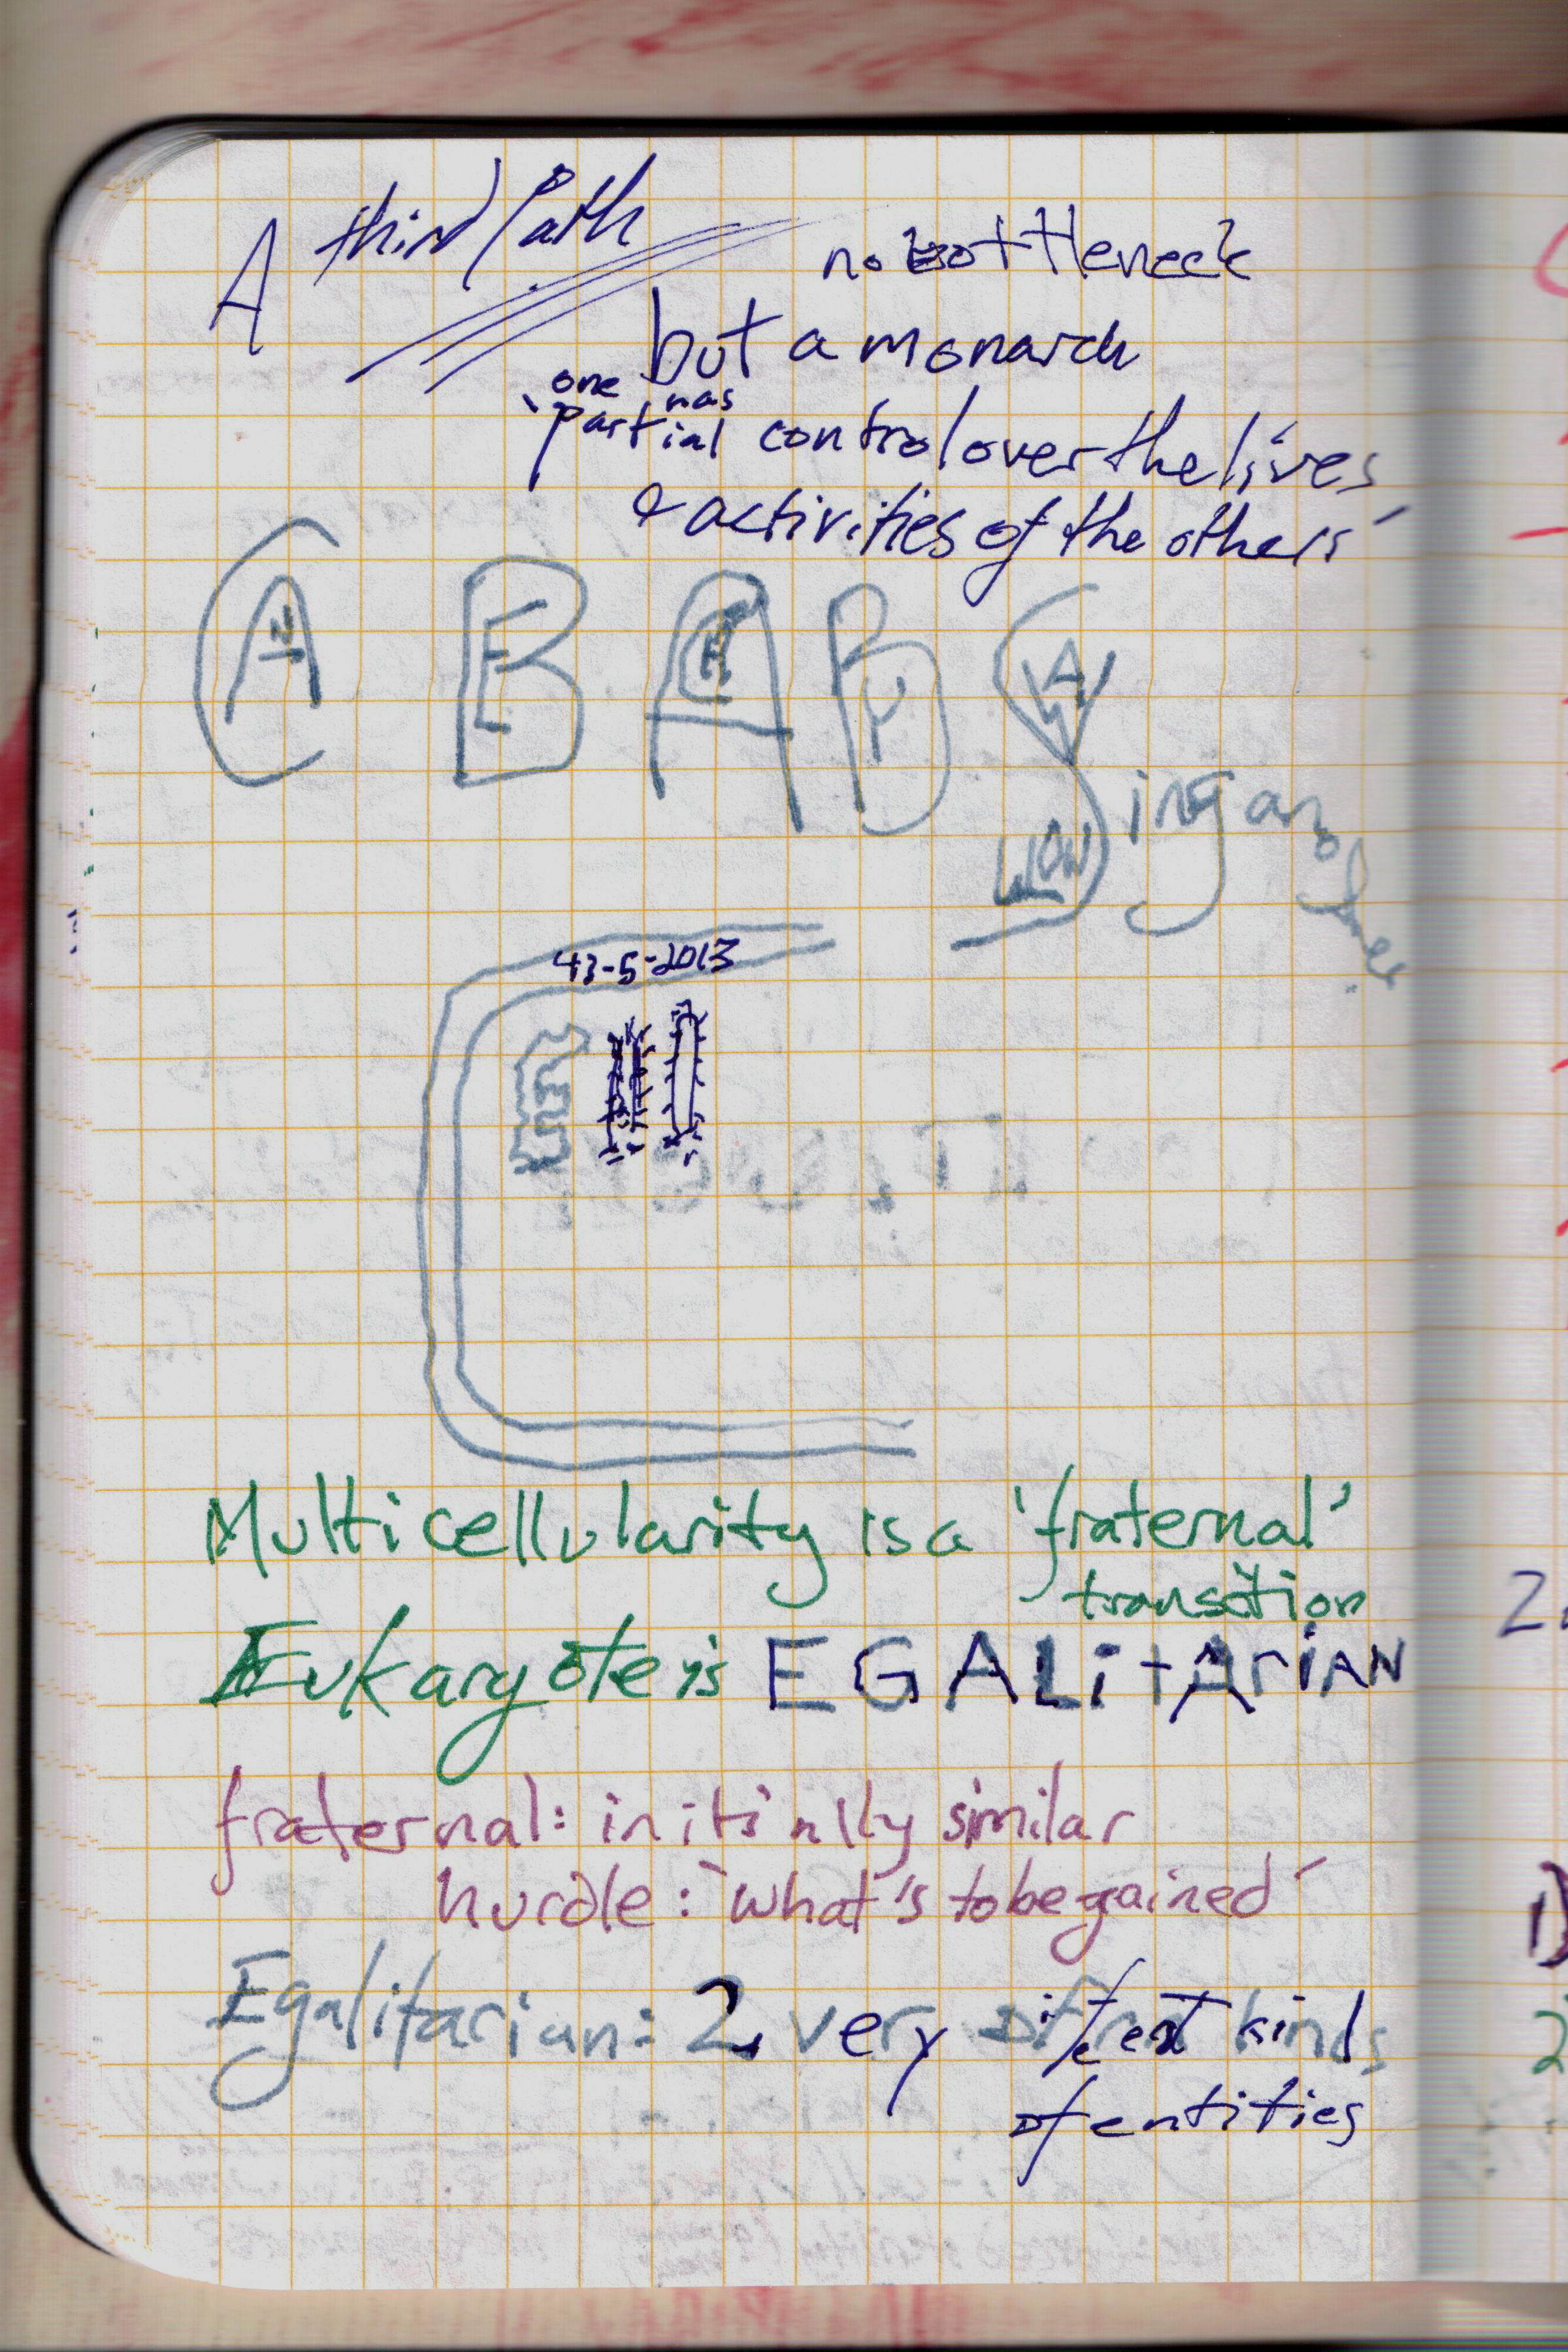 A third Path
no bottleneck
but a monarch
one has
'partial control over the lives
& activities of the others'
A BABY
ing an
43-5-2013
Multicellularity is a 'fraternal'
transition
Eukaryote is EGALitArIAN
fraternal: initially similar
hurdle: 'what's to be gained'
Egalitarian: 2 very different kinds
of entities